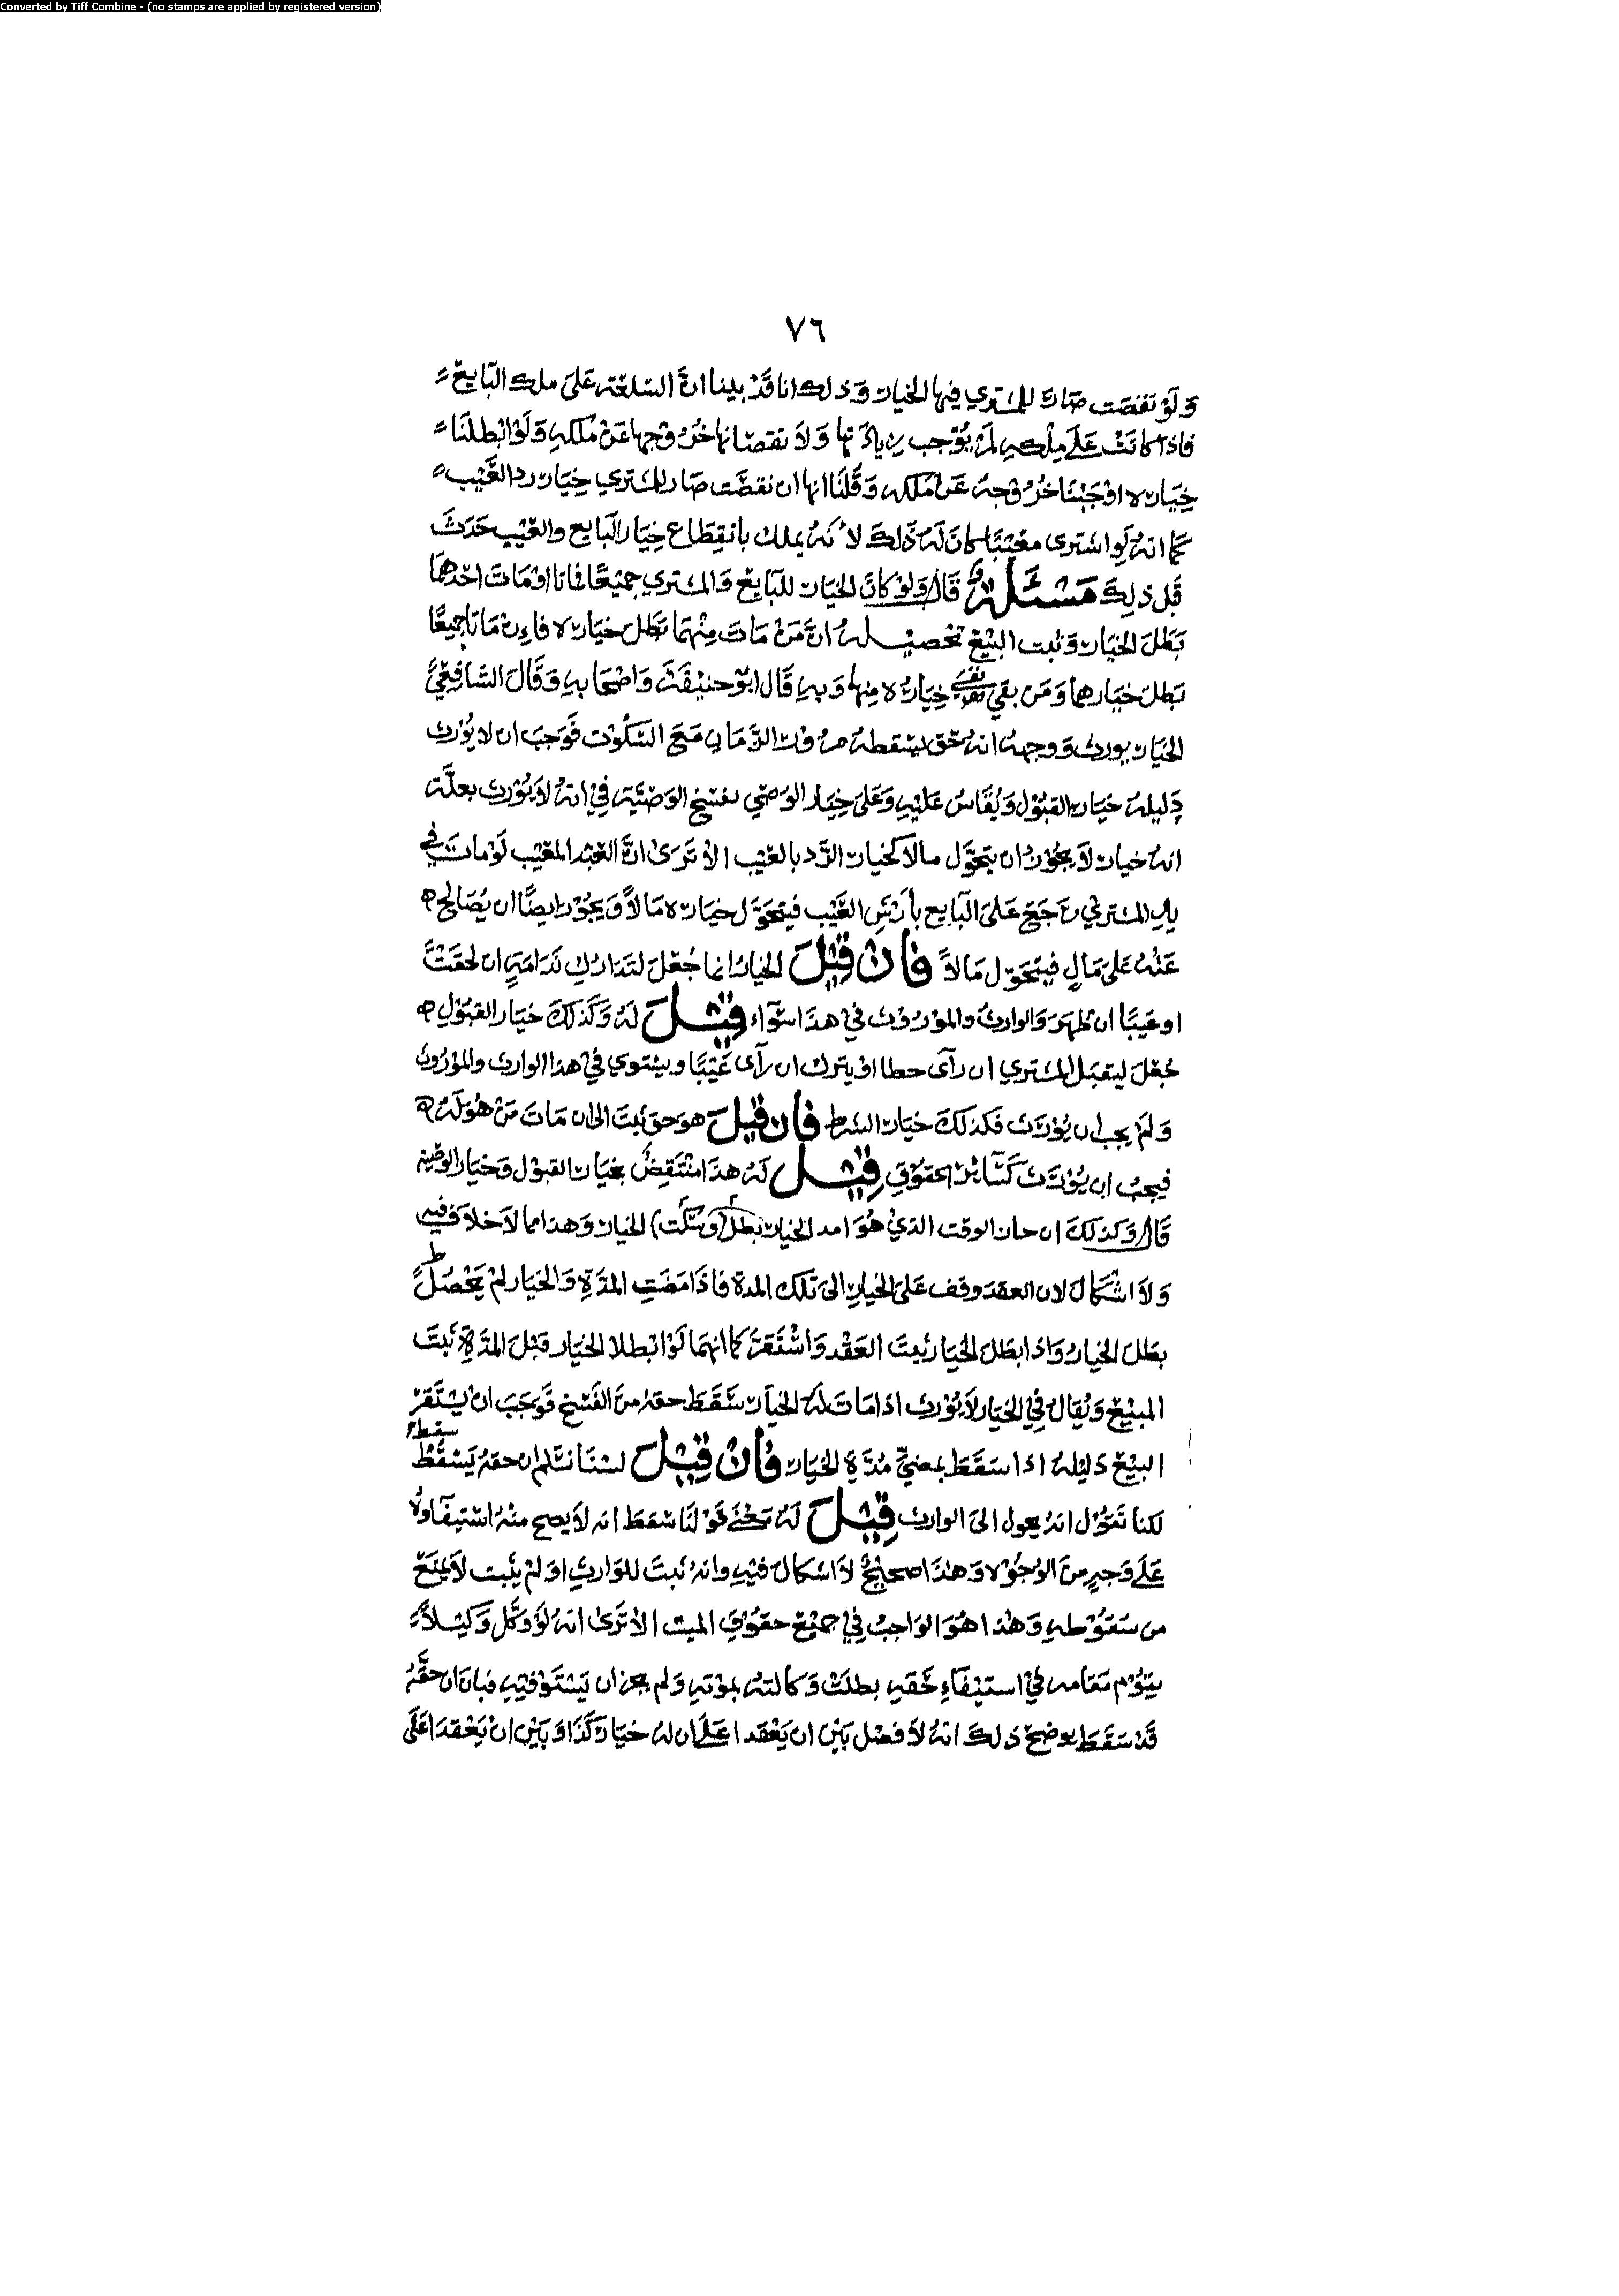 Converted by Tiff Combine - (no stamps are applied by registered version)
٧٦
ولو نقصت صار للمشتري فيها الخيار وذلك انا قد بينا ان السلعة على ملك البايع
فاذا كانت على ملكه لم يوجب زيادتها ولا نقصانها خروجها عن ملكه ولو ابطلنا
خياره اوجبنا خروجه عن ملكه وقلنا انها ان نقصت صار للمشتري خيار رد العيب
كما انه لو اشترى معيبا كان له ذلك لانه يملك بانقطاع خيار البايع والعيب حدث
قبل ذلك مسئلة قال ولو كان الخيار للبايع والمشتري جميعا فماتا او مات احدهما
بطل الخيار وثبت البيع تحصيله ان من مات منهما بطل خياره فاءن ماتا جميعا
بطل خيارهما ومن بقي بقي خياره منهما وبه قال ابو حنيفة واصحابه وقال الشافعي
الخيار يورث ووجهه انه حق يسقطه مرور الزمان مع السكوت فوجب ان لا يورث
دليله خيار القبول ويقاس عليه وعلى خيار الوصي لفسخ الوصية في انه لا يورث بعلة
انه خيار لا يجوز ان يتحول مالا كخيار الرد بالعيب الا ترى ان العبد المعيب لو مات في
يد المشتري رجع على البايع بأرش العيب فيتحول خياره مالا ويجوز ايضا ان يصالح
عنه على مال فيتحول مالا فان قيل الخيار انما جعل لتدارك ندامة ان لحقت
او عيبا ان ظهر والوارث والموروث في هذا سوآء قيل له وكذلك خيار القبول
جعل ليقبل المشتري ان رآى حطا او يترك ان رآى عيبا ويستوي في هذا الوارث والموروث
ولم يجب ان يورث فكذلك خيار الشرط فان قيل هو حق ثبت الى ان مات من هو له
فيجب ان يورث كسائر الحقوق قيل له هذا منتقض بخيار القبول وخيار الوصية
قال وكذلك ان حان الوقت الذي هو امد الخيار بطل (وسكت) الخيار وهذا مما لا خلاف فيه
ولا اشكال لان العقد وقف على الخيار الى تلك المدة فاذا مضت المدة والخيار لم يحصل
بطل الخيار واذا بطل الخيار ثبت العقد واستقر كما انهما لو ابطلا الخيار قبل المدة ثبت
المبيع ويقال في الخيار لا يورث اذا مات له الخيار سقط حقه من الفسخ فوجب ان يستقر
البيع دليله اذا سقط بمضي مدة الخيار فان قيل لسنا نسلم ان حقه يسقط سقط
لكنا نقول انه يحول الى الوارث قيل له معنى قولنا سقط انه لا يصح منه استيفاوه
على وجه من الوجوه وهذا صحيح لا اشكال فيه وانه ثبت للوارث او لم يثبت لا يمنع
من سقوطه وهذا هو الواجب في جميع حقوق الميت الا ترى انه لو وكل وكيلا
يقوم مقامه في استيفاء حقه بطلت وكالته بموته ولم يجز ان يستوفيه فبان ان حقه
قد سقط يوضح ذلك انه لا فصل بين ان يعقدا على ان له خيار كذا وبين ان يعقدا على